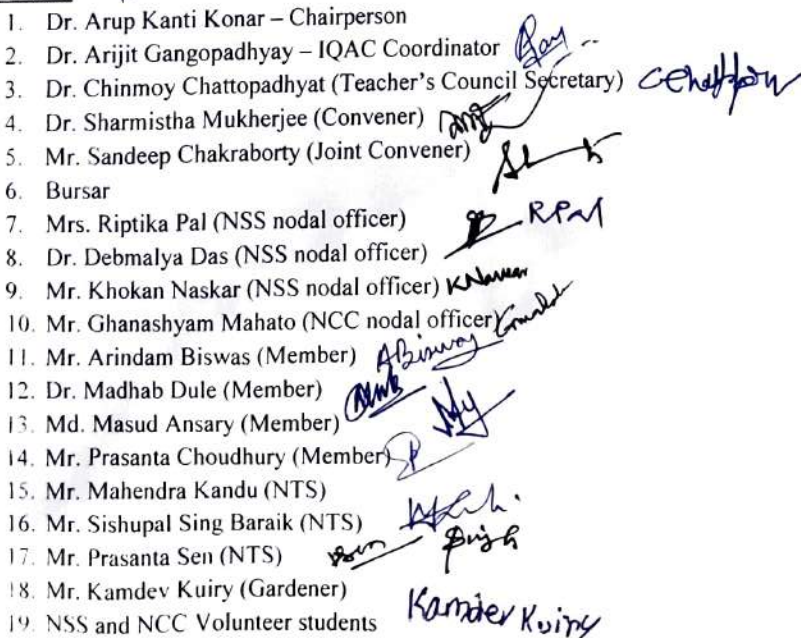 1. Dr. Arup Kanti Konar – Chairperson
2. Dr. Arijit Gangopadhyay – IQAC Coordinator
3. Dr. Chinmoy Chattopadhyat (Teacher's Council Secretary)
4. Dr. Sharmistha Mukherjee (Convener)
5. Mr. Sandeep Chakraborty (Joint Convener)
6. Bursar
7. Mrs. Riptika Pal (NSS nodal officer) R Pal
8. Dr. Debmalya Das (NSS nodal officer)
9. Mr. Khokan Naskar (NSS nodal officer) K Naskar
10. Mr. Ghanashyam Mahato (NCC nodal officer)
11. Mr. Arindam Biswas (Member) A Biswas
12. Dr. Madhab Dule (Member)
13. Md. Masud Ansary (Member)
14. Mr. Prasanta Choudhury (Member)
15. Mr. Mahendra Kandu (NTS)
16. Mr. Sishupal Sing Baraik (NTS)
17. Mr. Prasanta Sen (NTS)
18. Mr. Kamdev Kuiry (Gardener)
19. NSS and NCC Volunteer students Kamdev Kuiry